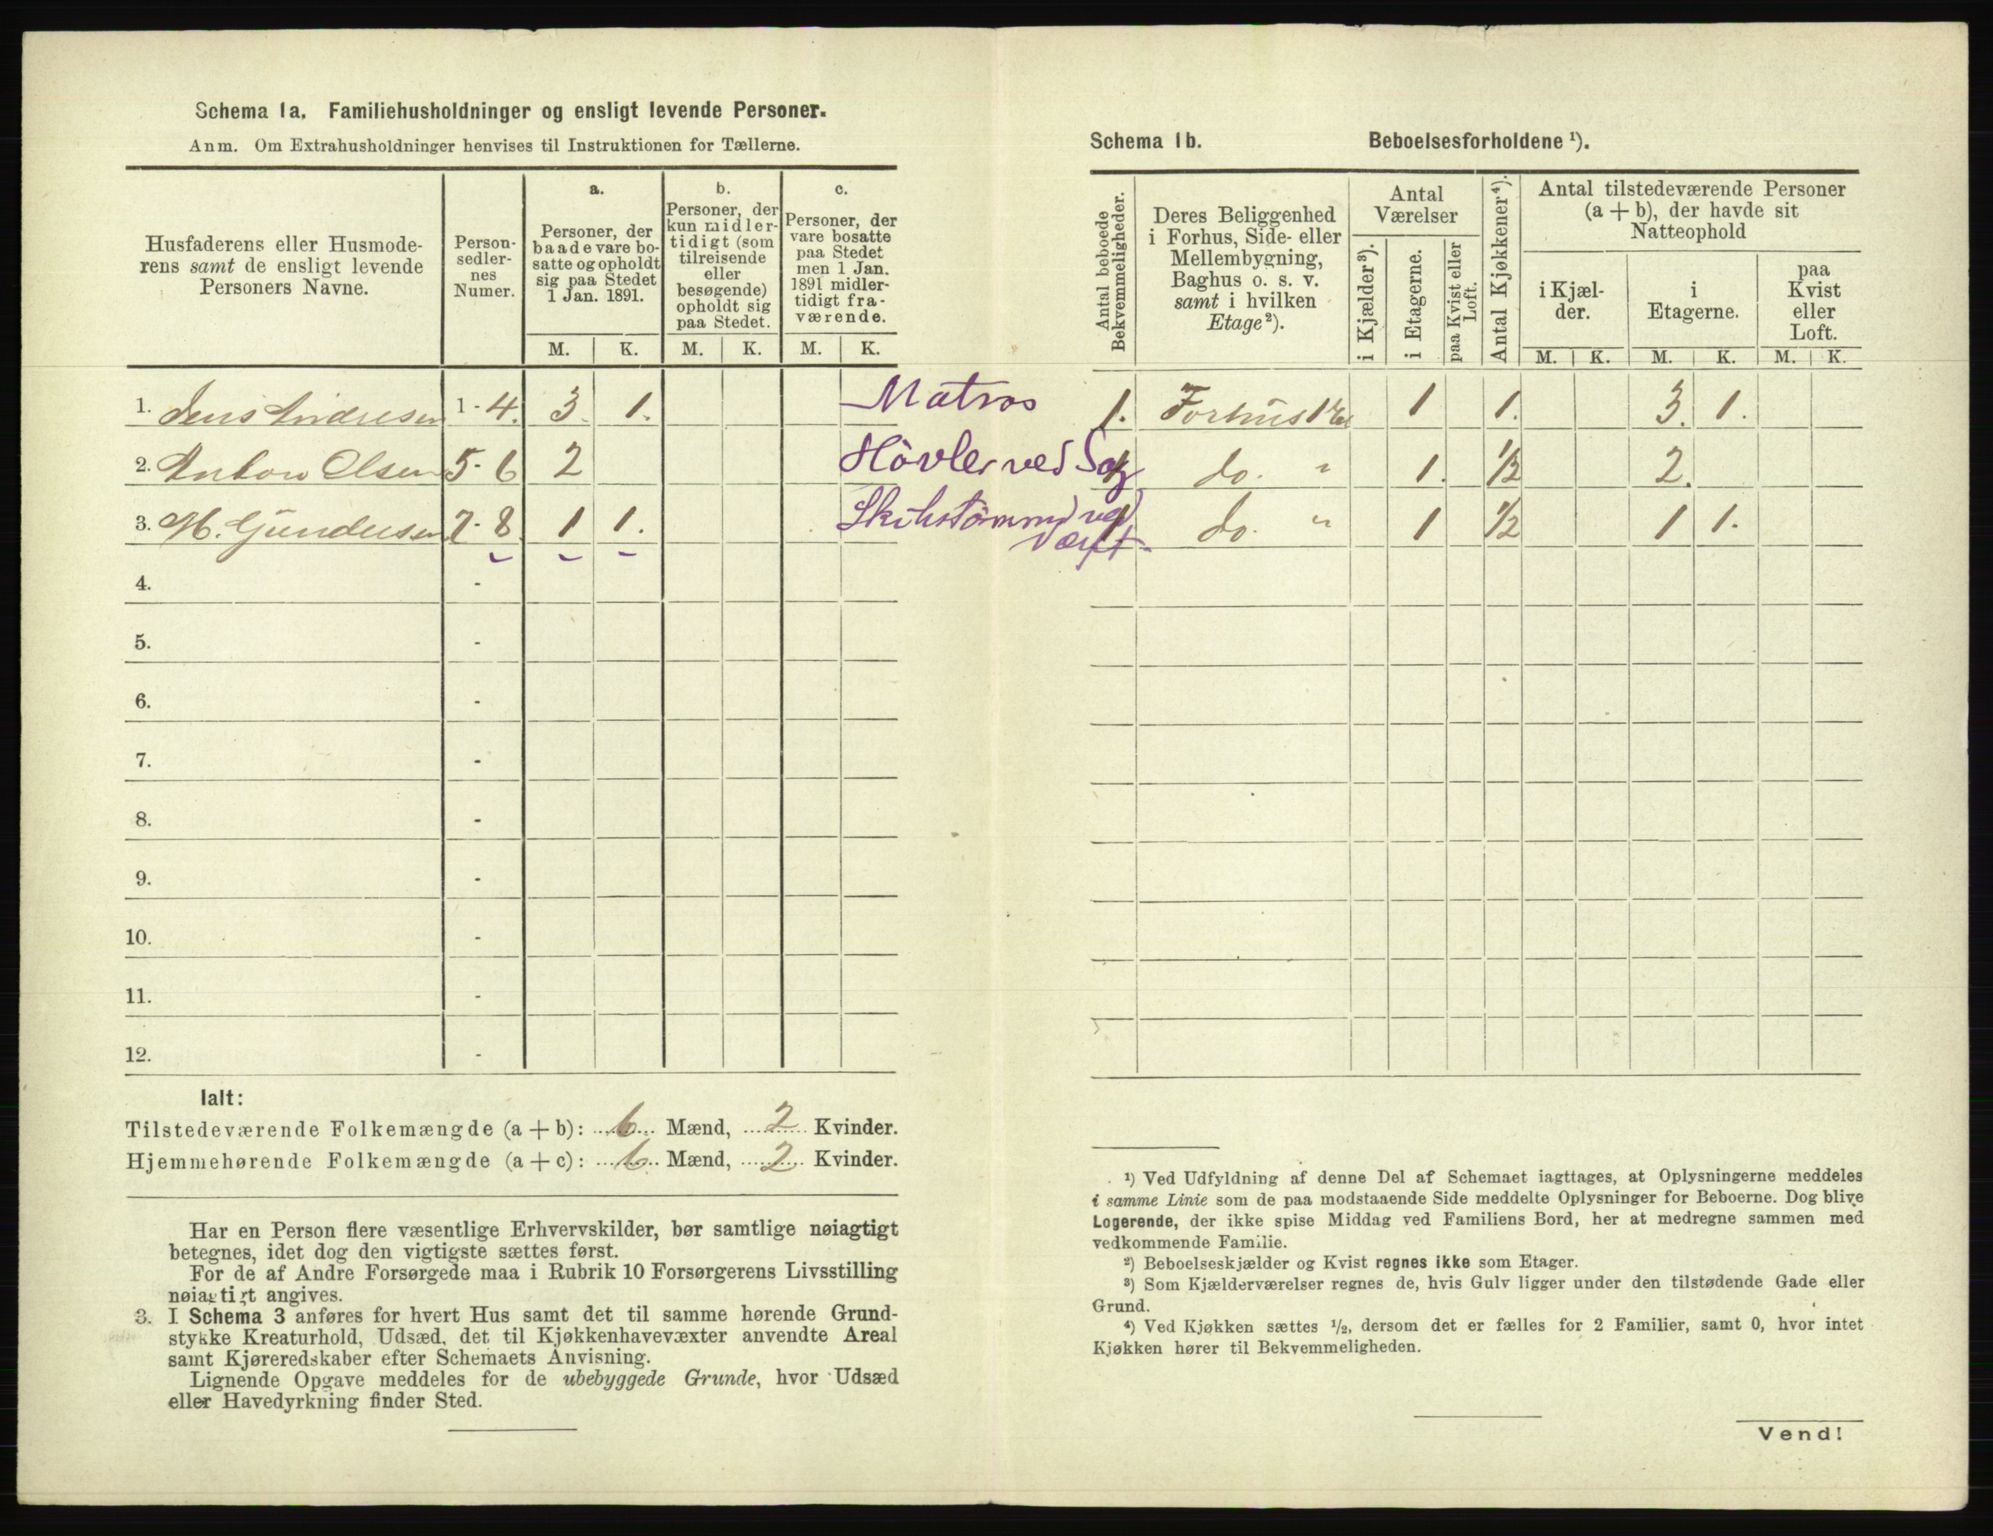 Schema 1a. Familiehusholdninger og ensligt levende Personer.
Anm. Om Extrahusholdninger henvises til Instruktionen for Tællerne.
Husfaderens eller Husmode-
rens samt de ensligt levende
Personers Navne.
Person-
sedler-
nes
Numer.
a.
Personer, der
baade vare bo-
satte og opholdt
sig paa Stedet
1 Jan. 1891.
b.
Personer, der
kun midler-
tidigt (som
tilreisende
eller
besøgende)
opholdt sig
paa Stedet.
c.
Personer, der
vare bosatte
paa Stedet
men 1 Jan.
1891 midler-
tidigt fra-
værende.
M. K. M. K. M. K.
1. Jens Andresen 1-4. 3. 1. Matros
2. Anton Olsen 5-6 2 Hövler ved Sag
3. M. Gundersen 7-8 1 1. Skibstömmd ved
Værft.
4. -
5. -
6. -
7. -
8. -
9. -
10. -
11. -
12. -
Ialt:
Tilstedeværende Folkemængde (a + b): 6 Mænd, 2 Kvinder.
Hjemmehørende Folkemængde (a + c): 6 Mænd, 2 Kvinder.
Har en Person flere væsentlige Erhvervskilder, bør samtlige nøiagtigt
betegnes, idet dog den vigtigste sættes først.
For de af Andre Forsørgede maa i Rubrik 10 Forsørgerens Livsstilling
nøiagtigt angives.
3. I Schema 3 anføres for hvert Hus samt det til samme hørende Grund-
stykke Kreaturhold, Udsæd, det til Kjøkkenhavevæxter anvendte Areal
samt Kjøreredskaber efter Schemaets Anvisning.
Lignende Opgave meddeles for de ubebyggede Grunde, hvor Udsæd
eller Havedyrkning finder Sted.
Schema 1b. Beboelsesforholdene ¹).
Antal beboede
Bekvemmeligheder.
Deres Beliggenhed
i Forhus, Side- eller
Mellembygning,
Baghus o. s. v.
samt i hvilken
Etage²).
Antal
Værelser
i Kjælder³).
i Etagerne.
paa Kvist eller
Loft.
Antal Kjøkkener⁴).
Antal tilstedeværende Personer
(a + b), der havde sit
Natteophold
i Kjæl-
der.
i
Etagerne.
paa
Kvist
eller
Loft.
M. K. M. K. M. K.
1. Forhus 1 1 1. 3. 1.
1 do. " 1. ½ 2.
1 do. " 1 ½ 1 1.
¹) Ved Udfyldning af denne Del af Schemaet iagttages, at Oplysningerne meddeles
i samme Linie som de paa modstaaende Side meddelte Oplysninger for Beboerne. Dog blive
Logerende, der ikke spise Middag ved Familiens Bord, her at medregne sammen med
vedkommende Familie.
²) Beboelseskjælder og Kvist regnes ikke som Etager.
³) Som Kjælderværelser regnes de, hvis Gulv ligger under den tilstødende Gade eller
Grund.
⁴) Ved Kjøkken sættes ½, dersom det er fælles for 2 Familier, samt 0, hvor intet
Kjøkken hører til Bekvemmeligheden.
Vend!